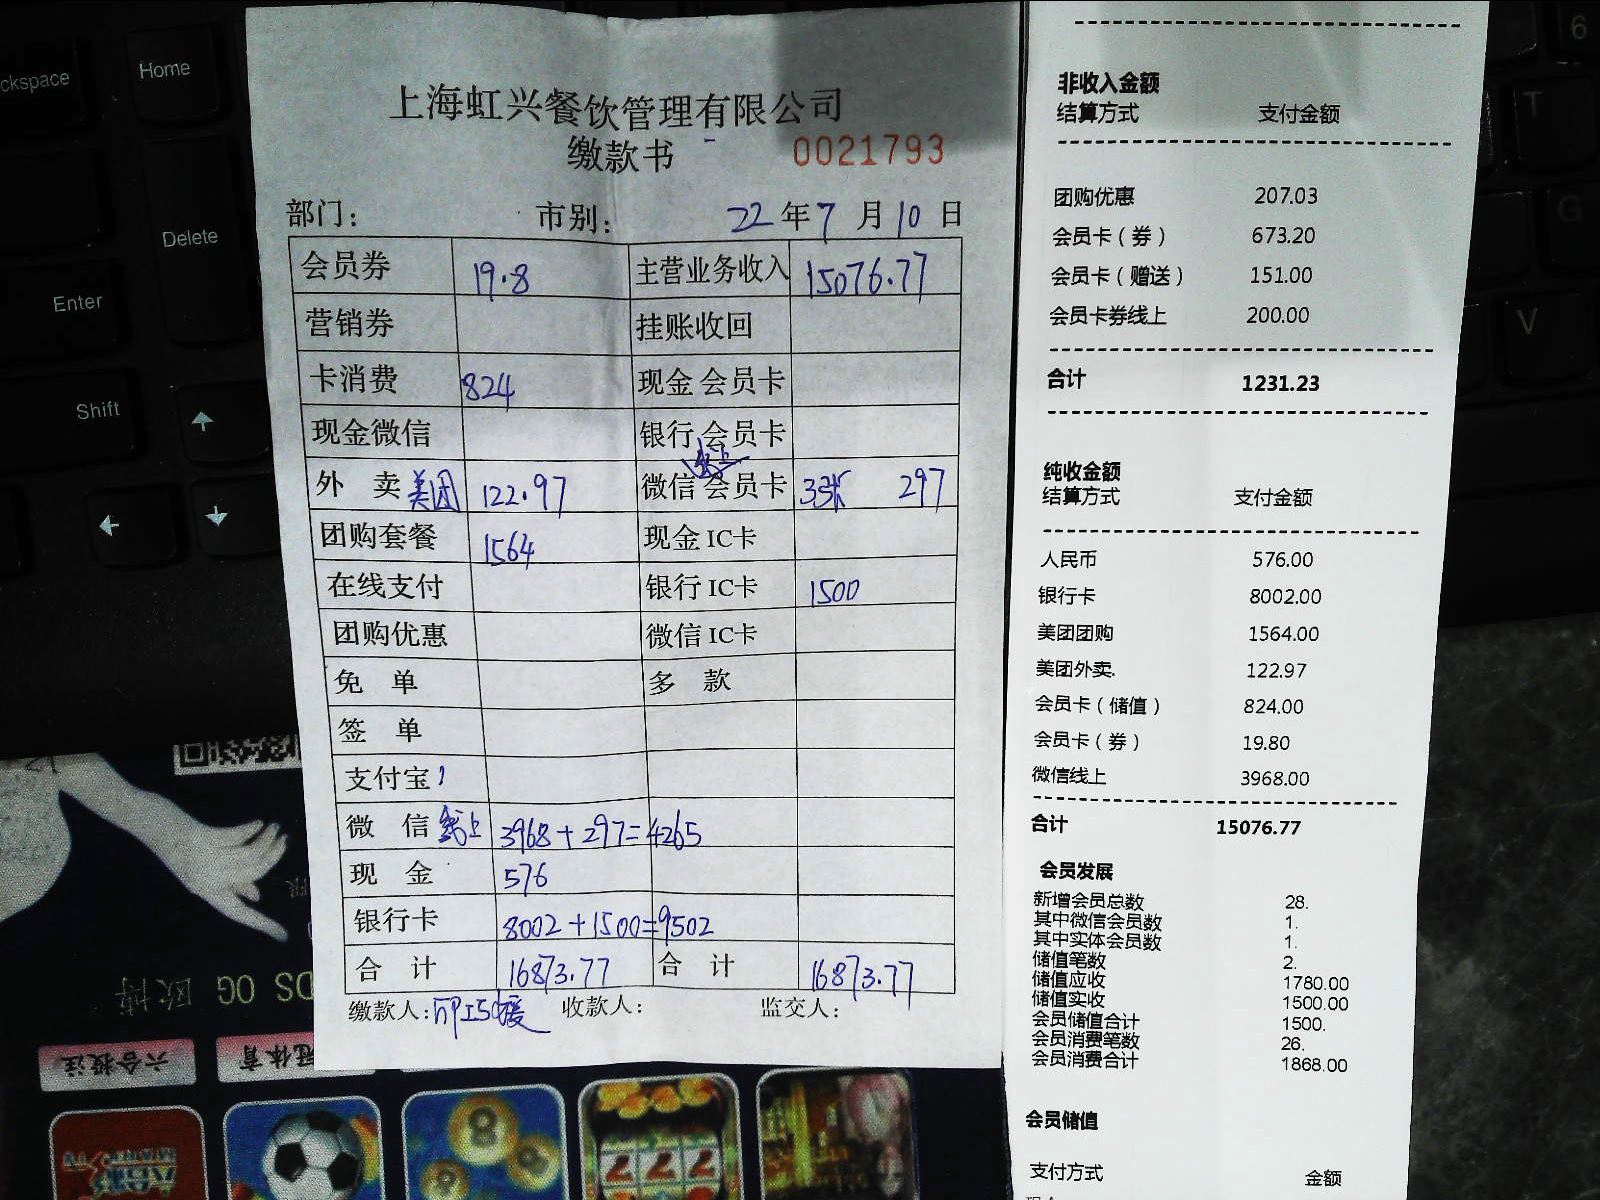 Home
Delete
Enter
Shift
6
T
G
V
上海虹兴餐饮管理有限公司
缴款书
0021793
部门:
市别:
22年7月10日
会员券 19.8 主营业务收入 15076.77
营销券 挂账收回
卡消费 824 现金会员卡
现金微信 银行会员卡
外卖美团 122.97 微信会员卡 3张 297
团购套餐 1564 现金IC卡
在线支付 银行IC卡 1500
团购优惠 微信IC卡
免单 多款
签单
支付宝
微信线上 3968+297=4265
现金 576
银行卡 8002+1500=9502
合计 16873.77 合计 16873.77
缴款人: 收款人: 监交人:
非收入金额
结算方式 支付金额
团购优惠 207.03
会员卡(券) 673.20
会员卡(赠送) 151.00
会员卡券线上 200.00
合计 1231.23
纯收金额
结算方式 支付金额
人民币 576.00
银行卡 8002.00
美团团购 1564.00
美团外卖. 122.97
会员卡(储值) 824.00
会员卡(券) 19.80
微信线上 3968.00
合计 15076.77
会员发展
新增会员总数 28.
其中微信会员数 1.
其中实体会员数 1.
储值笔数 2.
储值应收 1780.00
储值实收 1500.00
会员储值合计 1500.
会员消费笔数 26.
会员消费合计 1868.00
会员储值
支付方式 金额
欧博 OG DS
六合投注
体育
8
777